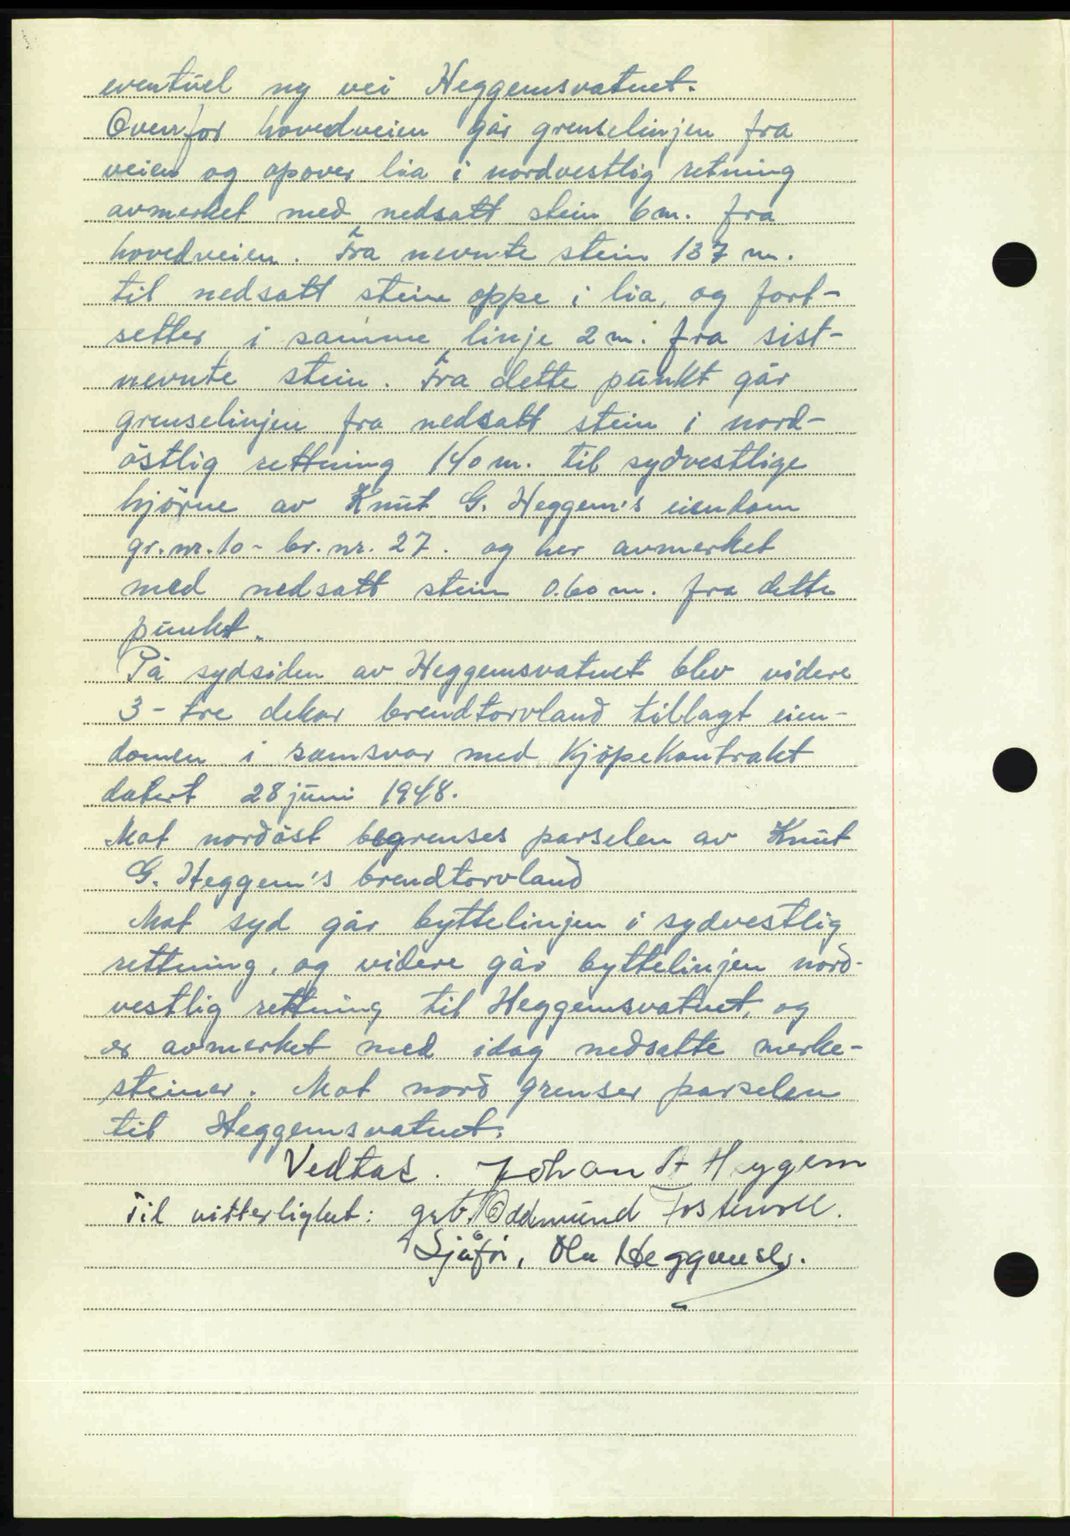 eventuel ny vei Heggemsvatnet.
Ovenfor hovedveien går grenselinjen fra
veien og opover lia i nordvestlig retning
avmerket med nedsatt stein 6 m. fra
hovedveien. Fra nevnte stein 137 m.
til nedsatt stein oppe i lia, og fort-
setter i samme linje 2 m. fra sist-
nevnte stein. Fra dette punkt går
grenselinjen fra nedsatt stein i nord-
östlig rettning 140 m. til sydvestlige
hjörne av Knut G. Heggem's eiendom
gr.nr. 10 - br.nr. 27. og her avmerket
med nedsatt stein 0.60 m. fra dette
punkt.
På sydsiden av Heggemsvatnet blev videre
3 - tre dekar brendtorvland tillagt eien-
domen i samsvar med Kjöpekontrakt
datert 28 juni 1948.
Mot nordöst begrenses parselen av Knut
G. Heggem's brendtorvland
Mot syd går byttelinjen i sydvestlig
rettning, og videre går byttelinjen nord-
vestlig rettning til Heggemsvatnet, og
er avmerket med idag nedsatte merke-
steiner. Mot nord grenser parselen
til Heggemsvatnet.
Vedtas. Johan A Heggem
Til vitterlighet: grb. Oddmund Fostervoll.
Sjåfør, Ola Heggemsli.